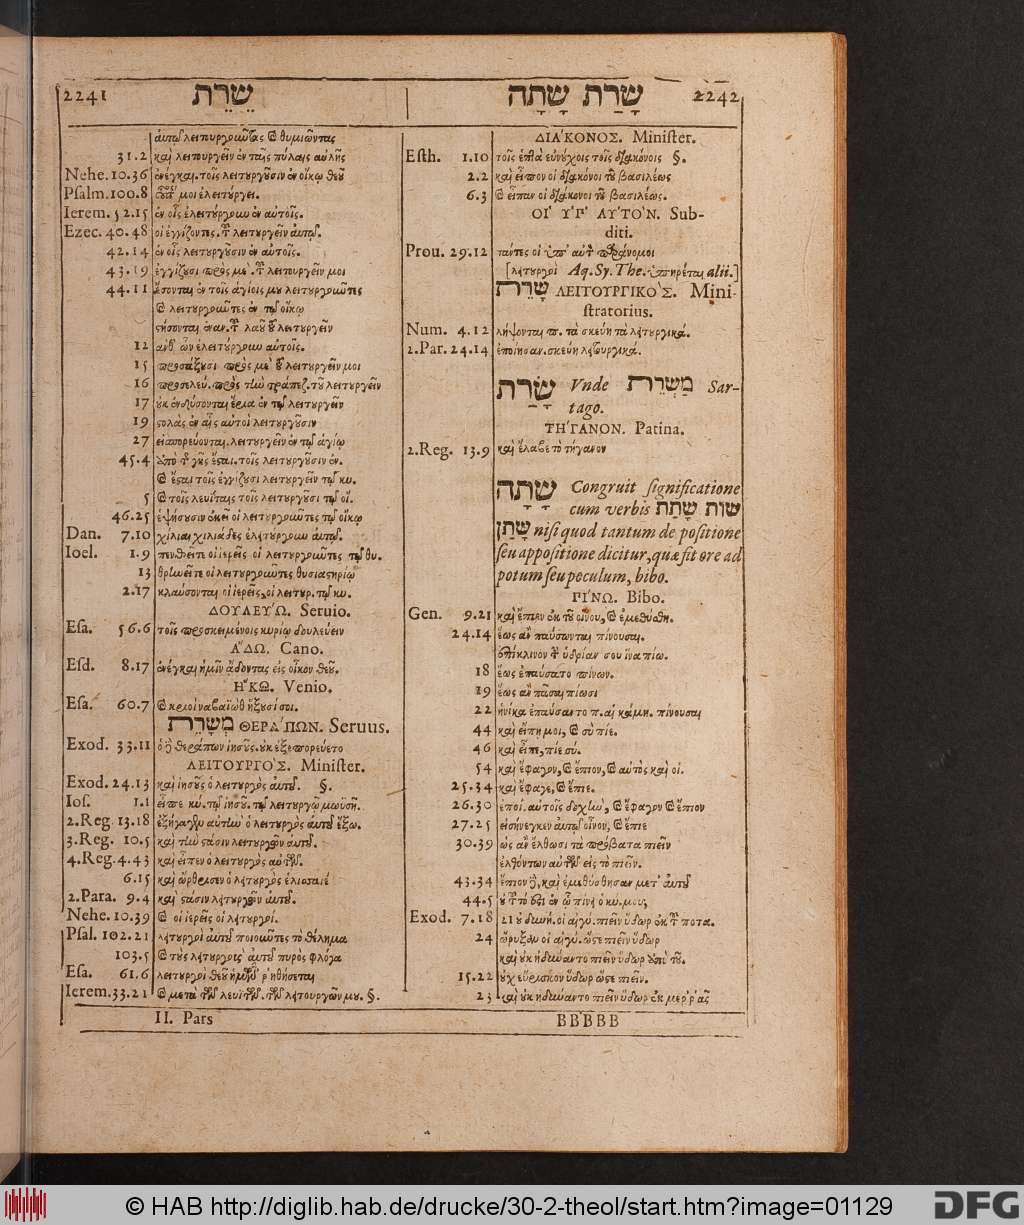 2241 שֵׁרֵת
שָׁרַת שָׁתָה 2242
31.2 καὶ λειτουργεῖν ἐν ταῖς πύλαις αὐλῆς
Nehe. 10.36 τοῖς λειτυργῦσιν ἐν οἴκῳ θεῦ
Psalm. 100.8 μοι ἐλειτύργει.
Ierem. 52.15 ἐν οἷς ἐλειτύργουν ἐν αὐτοῖς.
Ezec. 40.48 οἱ ἐγγίζοντες. λειτυργεῖν αὐτῷ.
42.14 ἐν οἷς λειτυργῦσιν ἐν αὐτοῖς.
43.19 ἐγγίζυσι πρὸς με. λειτουργεῖν μοι
44.11 ἔσονται ἐν τοῖς ἁγίοις μυ λειτυργοῦντες
λειτυργοῦντες ἐν τῷ οἴκῳ
λαοῦ λειτυργεῖν
12 ἀνθ᾽ ὧν ἐλειτύργουν αὐτοῖς.
15 πρὸς με λειτυργεῖν μοι
16 πρὸς τὴν τράπεζ. τῦ λειτυργεῖν
17 ἐν τῷ λειτυργεῖν
19 στολὰς ἐν αἷς αὐτοὶ λειτυργῦσιν
27 λειτυργεῖν ἐν τῷ ἁγίῳ
45.4 γῆς ἔσται. τοῖς λειτυργῦσιν ἐν.
ἔσται τοῖς ἐγγίζυσι λειτυργεῖν τῷ κυ.
5 τοῖς λευίταις τοῖς λειτυργῦσι τῷ οἴ.
46.25 ἑψήσυσιν ἐκεῖ οἱ λειτυργοῦντες τῷ οἴκῳ
Dan. 7.10 χίλιαι χιλιάδες ἐλειτύργουν αὐτῷ.
Ioel. 1.9 πενθεῖτε οἱ ἱερεῖς οἱ λειτυργοῦντες τῷ θυ.
13 θρηνεῖτε οἱ λειτυργοῦντες θυσιαστηρίῳ
2.17 κλαύσονται οἱ ἱερεῖς, οἱ λειτυρ. τῷ κυ.
ΔΟΥΛΕΥΏ. Seruio.
Esa. 56.6 τοῖς προσκειμένοις κυρίῳ δουλεύειν
ἌΔΩ. Cano.
Esd. 8.17 ἐνέγκαι ἡμῖν ᾄδοντας εἰς οἶκον θεῦ.
ἭΚΩ. Venio.
Esa. 60.7 ἥξυσί σοι.
מְשָׁרֵת ΘΕΡΆΠΩΝ. Seruus.
Exod. 33.11 ὁ δὲ θεράπων ἰησῦς. ὐκ ἐξεπορεύετο
ΛΕΙΤΟΥΡΓΌΣ. Minister.
Exod. 24.13 καὶ ἰησῦς ὁ λειτυργὸς αὐτῦ. §.
Ios. 1.1 εἶπε κύ. τῷ ἰησῦ. τῷ λειτυργῷ μωϋσῆ.
2.Reg. 13.18 ἐξήγαγεν αὐτὴν ὁ λειτυργὸς αὐτῦ ἔξω.
3.Reg. 10.5 καὶ τὴν στάσιν λειτυργῶν αὐτῦ.
4.Reg. 4.43 καὶ εἶπεν ὁ λειτυργὸς αὐτῦ.
6.15 καὶ ὤρθρισεν ὁ λειτυργὸς ἑλισσαιέ
2.Para. 9.4 καὶ στάσιν λειτυργῶν αὐτῦ.
Nehe. 10.39 οἱ ἱερεῖς οἱ λειτυργοί.
Psal. 102.21 λειτυργοὶ αὐτῦ ποιοῦντες τὸ θέλημα
103.5 τὺς λειτυργὺς αὐτῦ πυρὸς φλόγα
Esa. 61.6 λειτυργοὶ θεῦ ἡμῶν ῥηθήσεται
Ierem. 33.21 μετὰ τῶν λευϊτῶν. τῶν λειτυργῶν μυ. §.
II. Pars
ΔΙΆΚΟΝΟΣ. Minister.
Esth. 1.10 τοῖς ἑπτὰ εὐνύχοις τοῖς διακόνοις §.
2.2 καὶ εἶπον οἱ διάκονοι τῦ βασιλέως
6.3 εἶπαν οἱ διάκονοι τῦ βασιλέως.
ΟΙ ὙΠ' ΑΥΤΟΝ. Sub-
diti.
Prou. 29.12 πάντες οἱ ὑπ᾽ αὐτὸν παράνομοι
[λειτυργοὶ Aq. Sy. The. ὑπηρέται alii.]
שָׁרֵת ΛΕΙΤΟΥΡΓΙΚΌΣ. Mini-
stratorius.
Num. 4.12 λήψονται π. τὰ σκεύη τὰ λειτυργικά.
2.Par. 24.14 ἐποίησαν. σκεύη λειτυργικά.
שָׂרַת Vnde מַשְׂרֵת Sar-
tago.
ΤΉΓΑΝΟΝ. Patina.
2.Reg. 13.9 καὶ ἔλαβε τὸ τήγανον
שָׁתָה Congruit significatione
cum verbis שׁות שָׁתַת
שָׁתַן nisi quod tantum de positione
seu appositione dicitur, quæ sit ore ad
potum seu poculum, bibo.
ΠΊΝΩ. Bibo.
Gen. 9.21 καὶ ἔπιεν ἐκ τῦ οἴνου, ἐμεθύσθη.
24.14 ἕως ἂν παύσωνται πίνουσαι.
ὑδρίαν σου ἵνα πίω.
18 ἕως ἐπαύσατο πίνων.
19 ἕως ἂν πᾶσαι πίωσι
22 ἡνίκα ἐπαύσαντο π. αἱ κάμη. πίνουσαι
44 καὶ εἴπῃ μοι, σὺ πίε.
46 καὶ εἶπε, πίε σύ.
54 καὶ ἔφαγον, ἔπιον, αὐτὸς καὶ οἱ.
25.34 καὶ ἔφαγε, ἔπιε.
26.30 ἐποί. αὐτοῖς δοχὴν, ἔφαγον ἔπιον
27.25 εἰσήνεγκεν αὐτῷ οἶνον, ἔπιε
30.39 ὡς ἂν ἔλθωσι τὰ πρόβατα πιεῖν
ἐλθόντων αὐτῶν εἰς τὸ πιεῖν.
43.34 ἔπιον δὲ, καὶ ἐμεθύσθησαν μετ᾽ αὐτῦ
44.5 ἐν ᾧ πίνει ὁ κύ. μου;
Exod. 7.18 οἱ αἰγύ. πιεῖν ὕδωρ ποτα.
24 ὤρυξαν οἱ αἰγύ. ὥστε πιεῖν ὕδωρ
καὶ ὐκ ἠδύναντο πιεῖν ὕδωρ ἀπὸ τῦ.
15.22 ὐχ εὕρισκον ὕδωρ ὥστε πιεῖν.
23 καὶ ὐκ ἠδύναντο πιεῖν ὕδωρ ἐκ μερρᾶς
BBBBB
© HAB http://diglib.hab.de/drucke/30-2-theol/start.htm?image=01129
DFG